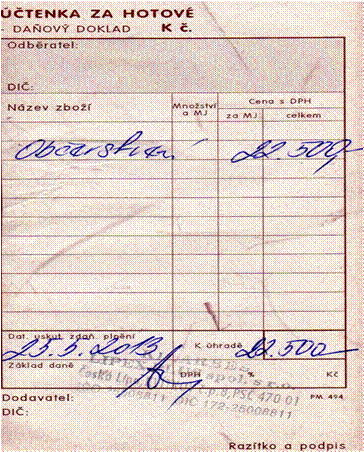 ÚČTENKA ZA HOTOVÉ
- DAŇOVÝ DOKLAD K č.
Odběratel:
DIČ:
Název zboží Množství a MJ Cena s DPH
za MJ celkem
Občerstvení 22.500,-
Dat. uskut. zdaň. plnění K úhradě
25.5.2013 22.500
Základ daně DPH % Kč
LIPEX spol. s r.o.
Česká Lípa PSČ 470 01
DIČ 172-25008811
Dodavatel: PM 494
DIČ:
Razítko a podpis